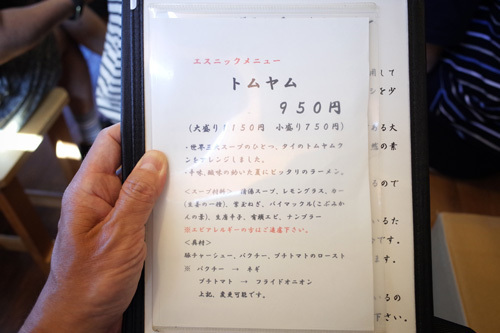 エスニックメニュー
トムヤム
９５０円
（大盛り１１５０円　小盛り７５０円）
・世界三大スープのひとつ、タイのトムヤムラ
ーメンをアレンジしました。
・辛味、酸味の効いた夏にピッタリのラーメン。
＜スープ材料＞ 清湯スープ、レモングラス、カー
（生姜の一種）、紫玉ねぎ、バイマックル（こぶみか
んの葉）、生唐辛子、有機エビ、ナンプラー
※エビアレルギーの方はご遠慮下さい。
＜具材＞
豚チャーシュー、パクチー、プチトマトのロースト
※　パクチー　→　ネギ
プチトマト　→　フライドオニオン
上記、変更可能です。
して
少
ある大
の素
ので
いるた
です。
ます。
いるの
下さい。